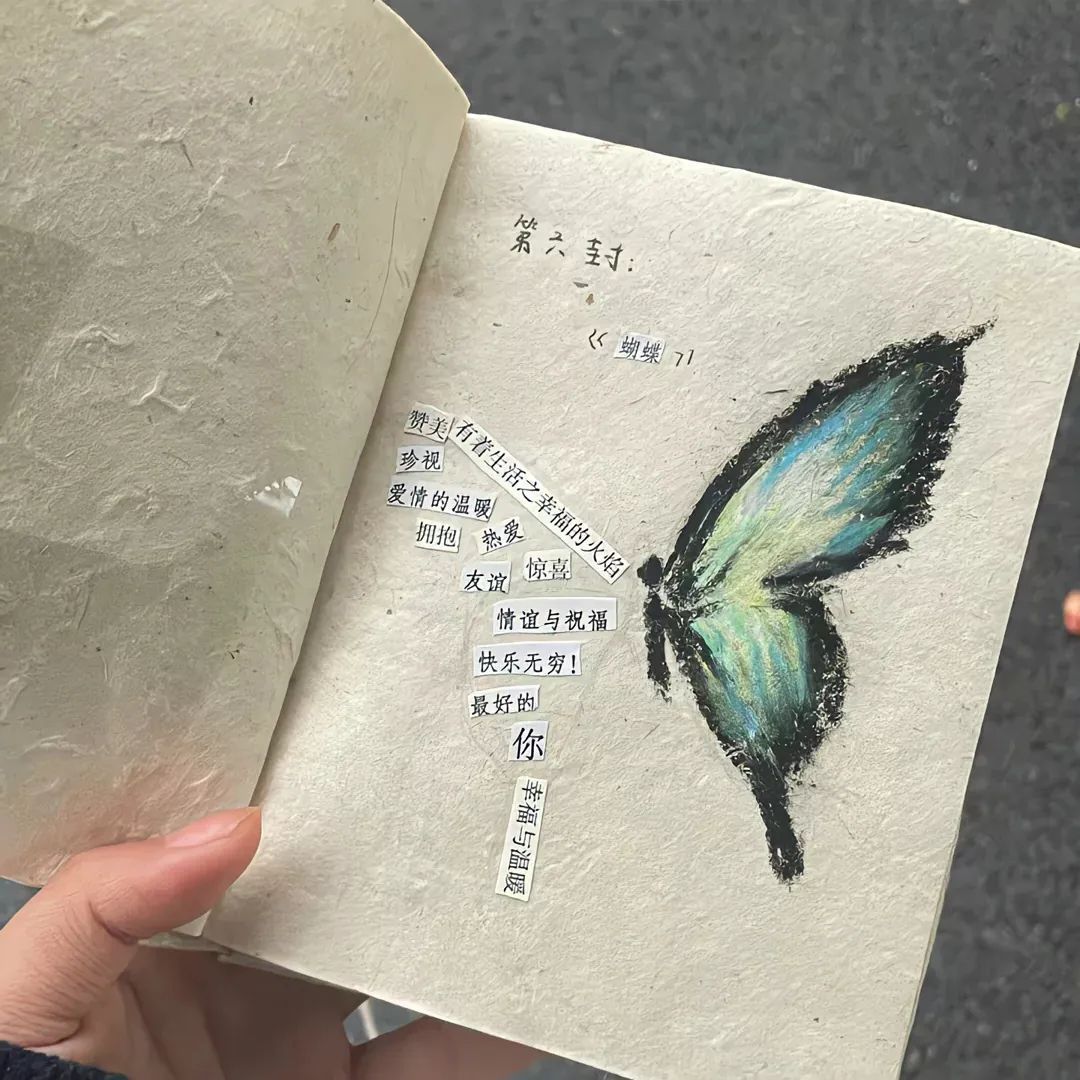 第六封:
《蝴蝶》
赞美
有着生活之幸福的火焰
珍视
爱情的温暖
拥抱
热爱
友谊
惊喜
情谊与祝福
快乐无穷!
最好的
你
幸福与温暖